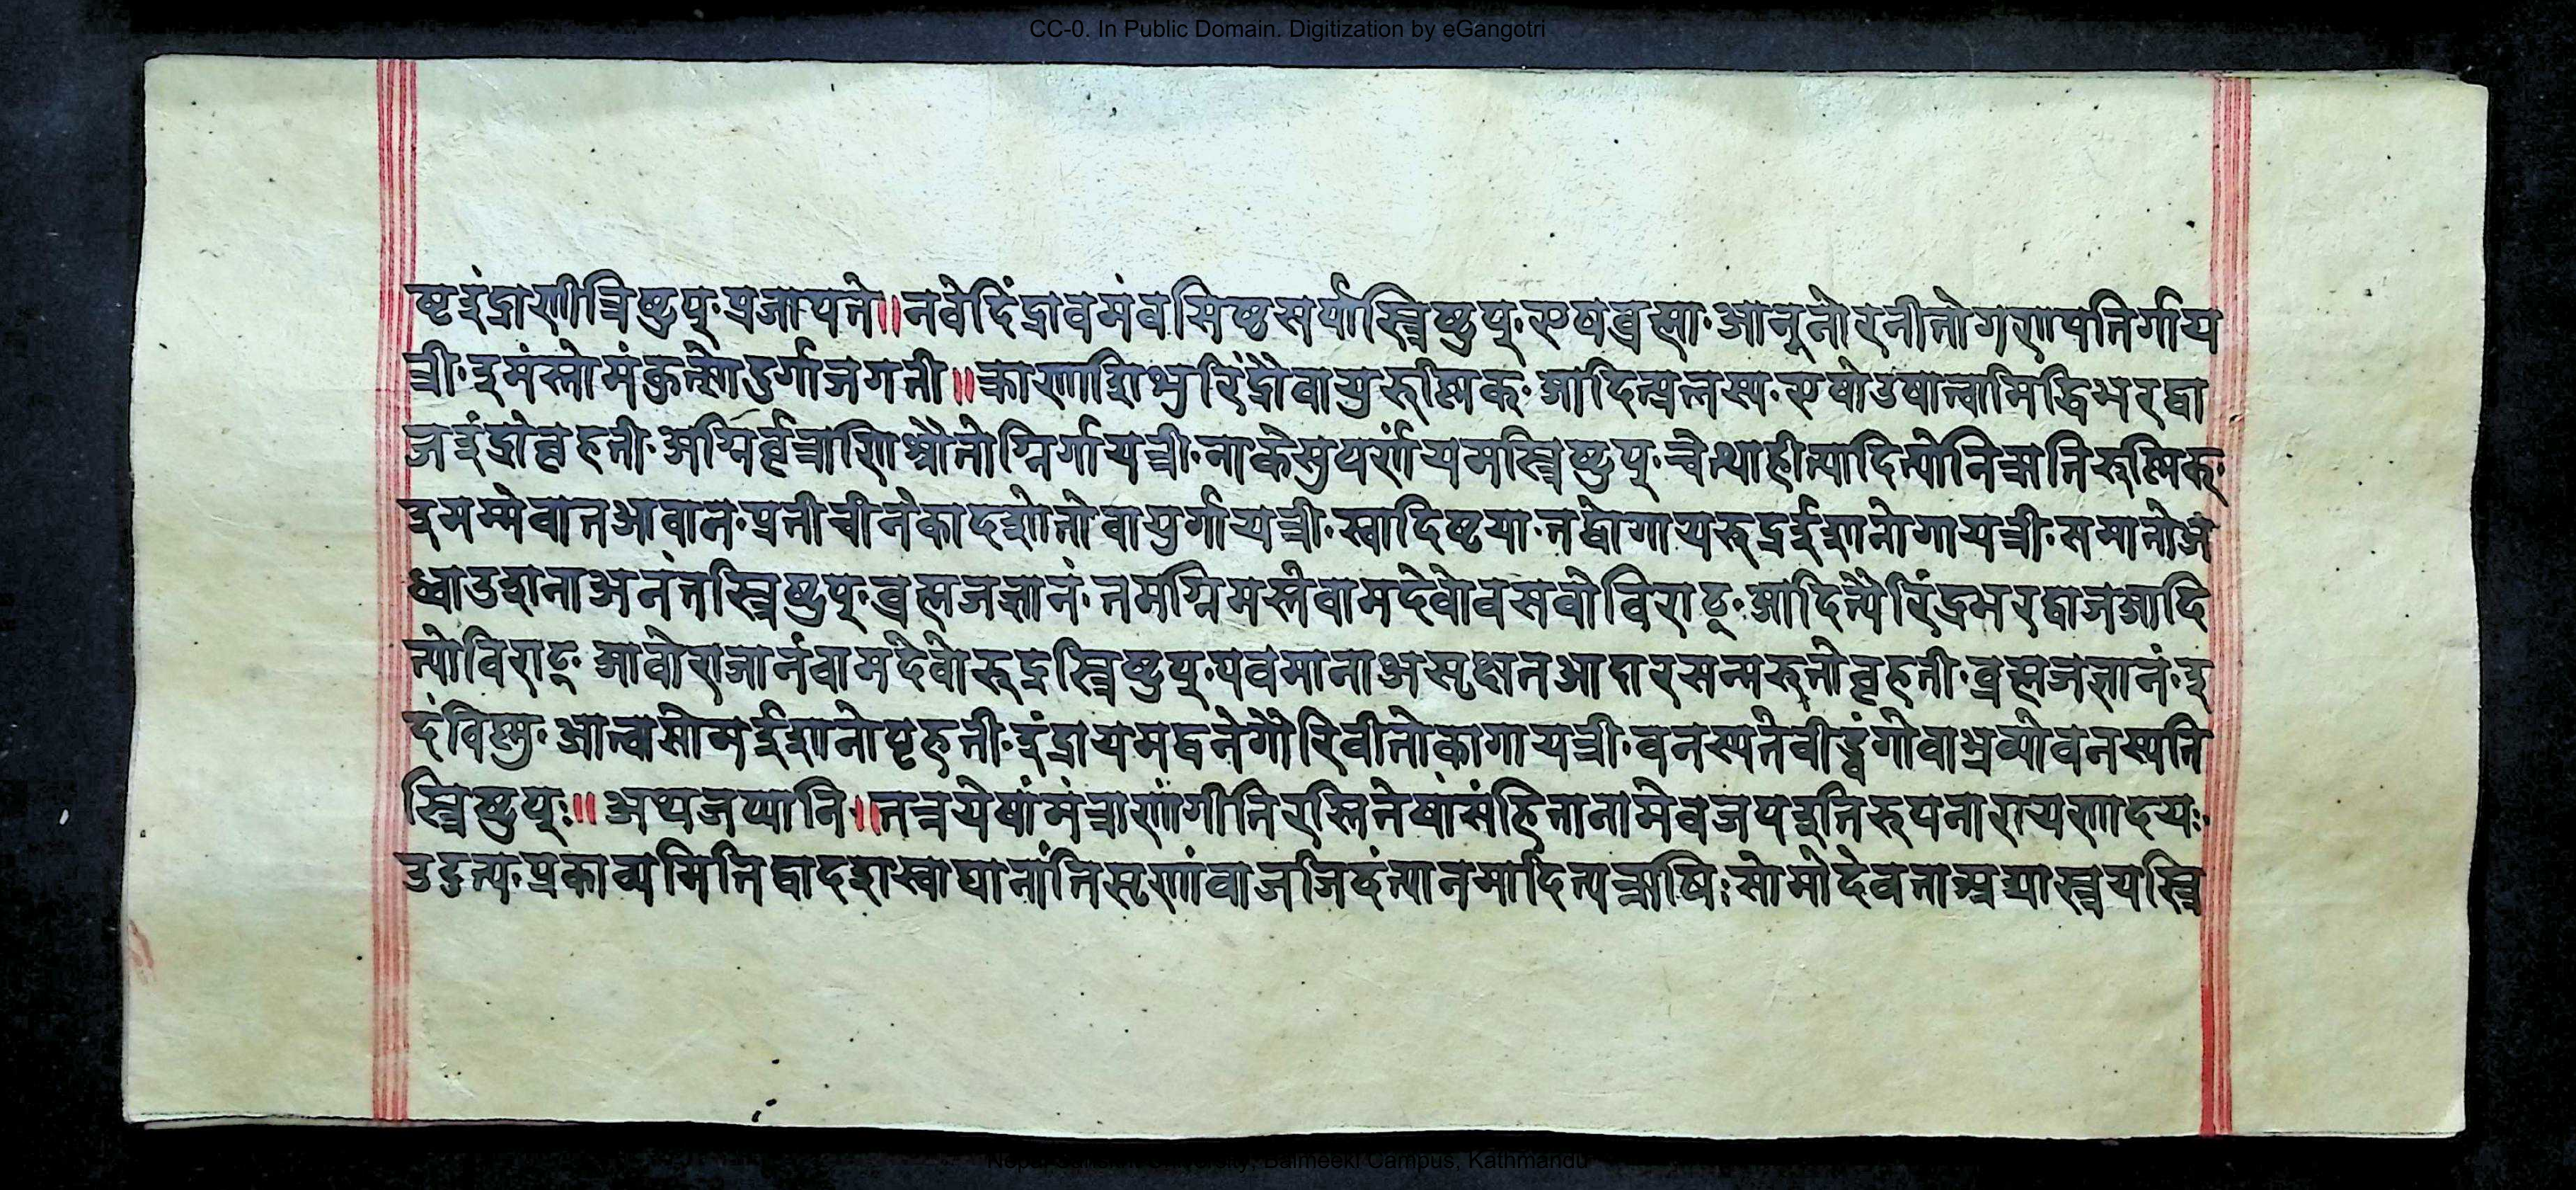 CC-0. In Public Domain. Digitization by eGangotri
ष्टइंद्राणीत्रिष्टुप्·प्रजापते॥तवेदिंद्रावमंवसिष्ठसर्यास्त्रिष्टुप्·एषब्रह्मा·आनूनोरनीतोगणपतिर्गाय
त्री·इमंस्तोमंकुत्सोदुर्गाजगती॥क्राणाशिभुरिंद्रोवायुरुष्णिक्·आदित्प्रत्नस्य·एषोउषात्वामिद्धिभरद्वा
जइंद्रोबृहती·अग्निर्वृत्राणिश्वौतोग्निर्गायत्री·नाकेसुपर्णंयमस्त्रिष्टुप्·चैत्थाहीत्यादित्योनिऋतिरुष्णिक्·
इमम्मेवानआवान·प्रतीचीनेकादशोनोवायुर्गायत्री·स्वादिष्टया·तद्वोगायरुद्रईशानोगायत्री·समानोअ
ध्वाउशनाअनंतस्त्रिष्टुप्·ब्रह्मजज्ञानं·तमग्निमस्तेवामदेवोवसवोविराट्·आदित्यैरिंद्रभरद्वाजआदि
त्योविराट्·आवोराजानंवामदेवोरुद्रस्त्रिष्टुप्·पवमानाअसृक्षतआदारसन्मरुतोबृहती·ब्रह्मजज्ञानं·इ
दंविष्णु·आत्वासोमईशानोबृहती·इंद्रायमद्वनेगौरिवीतोकागायत्री·वनस्पतेवीड्वंगोवाभ्रव्योवनस्पति
स्त्रिष्टुप्:॥अथजप्यानि॥तत्रयेषांमंत्राणांगीतिरस्तितेषांसंहितानामेवजपइतिरुपनारायणादयः·
उदुत्य·प्रकाव्यमितिद्वादशस्वाद्यानांतिसृणांवाजजिदंत्यानमादित्यऋषिः सोमोदेवताआद्यास्त्रयस्त्रि
Nepal Sanskrit University, Balmeeki Campus, Kathmandu